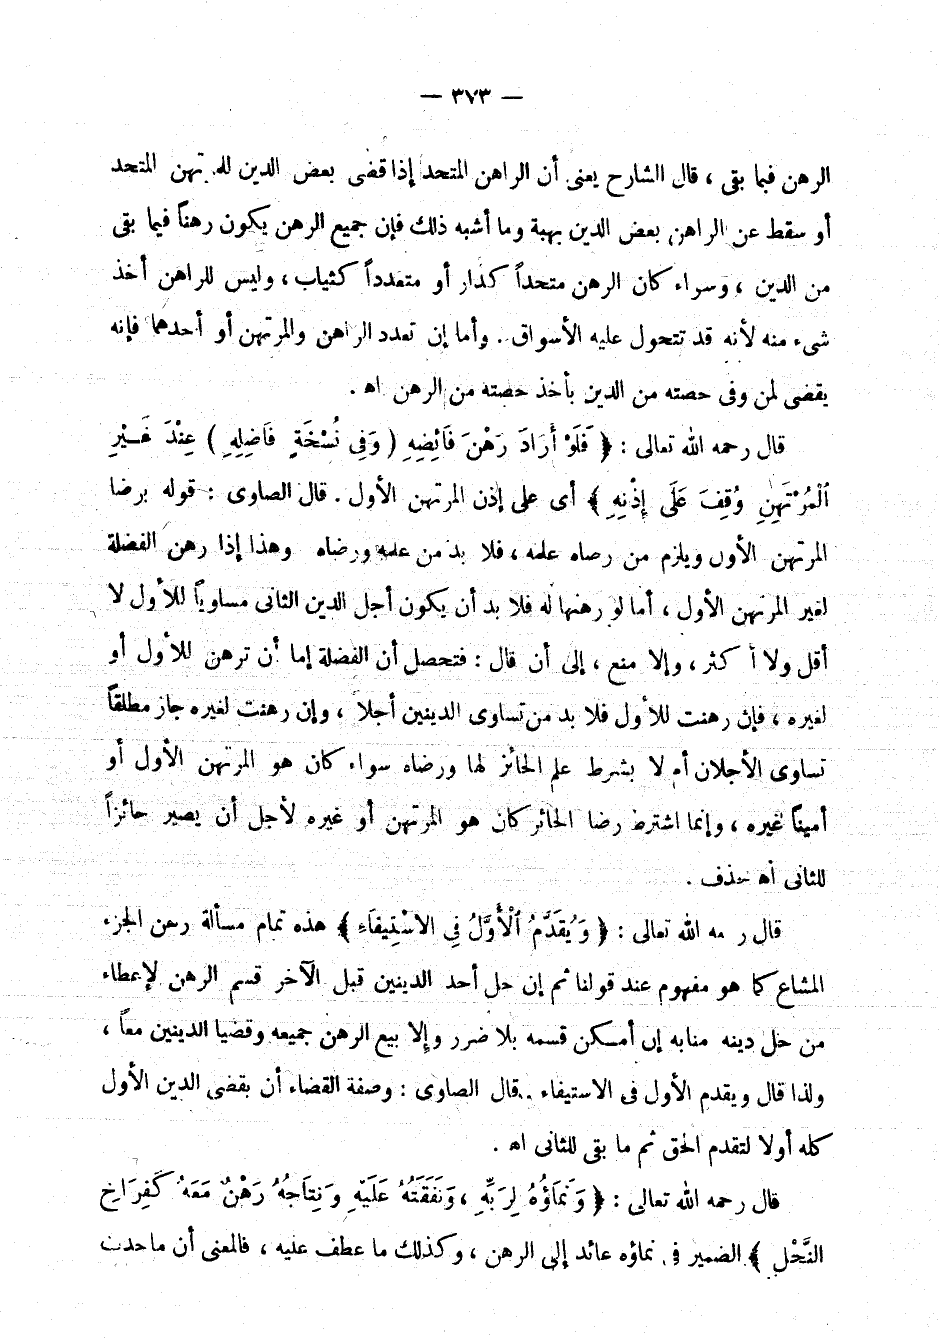 — ٣٧٣ —
الرهن فيما بقى ، قال الشارح يعنى أن الراهن المتحد إذا قضى بعض الدين للمرتهن المتحد
أو سقط عن الراهن بعض الدين بهبة وما أشبه ذلك فإن جميع الرهن يكون رهناً فيما بقى
من الدين ، وسواء كان الرهن متحداً كدار أو متعدداً كثياب ، وليس للراهن أخذ
شىء منه لأنه قد تتحول عليه الأسواق . وأما إن تعدد الراهن والمرتهن أو أحدهما فإنه
يقضى لمن وفى حصته من الدين بأخذ حصته من الرهن اه .
قال رحمه الله تعالى : ﴿ فَلَوْ أَرَادَ رَهْنَ فَائِضِهِ ( وَفِى نُسْخَةٍ فَاضِلِهِ ) عِنْدَ غَـيْرِ
الْمُرْتَهِنِ وُقِفَ عَلَى إِذْنِهِ ﴾ أى على إذن المرتهن الأول . قال الصاوى : قوله برضا
المرتهن الأول ويلزم من رضاه علمه ، فلا بد من علمه ورضاه وهذا إذا رهن الفضلة
لغير المرتهن الأول ، أما لو رهنها له فلا بد أن يكون أجل الدين الثانى مساوياً للأول لا
أقل ولا أكثر ، وإلا منع ، إلى أن قال : فتحصل أن الفضلة إما أن ترهن للأول أو
لغيره ، فإن رهنت للأول فلا بد من تساوى الدينين أجلا ، وإن رهنت لغيره جاز مطلقاً
تساوى الأجلان أم لا بشرط علم الحائز لها ورضاه سواء كان هو المرتهن الأول أو
أميناً غيره ، وإنما اشترط رضا الحائز كان هو المرتهن أو غيره لأجل أن يصير حائزاً
للثانى اه بحذف .
قال رحمه الله تعالى : ﴿ وَيُقَدَّمُ الْأَوَّلُ فِى الاسْتِيفَاءِ ﴾ هذه تمام مسألة رهن الجزء
المشاع كما هو مفهوم عند قولنا ثم إن حل أحد الدينين قبل الآخر قسم الرهن لإعطاء
من حل دينه منابه إن أمـكن قسمه بلا ضرر وإلا بيع الرهن جميعه وقضيا الدينين معاً ،
ولذا قال ويقدم الأول فى الاستيفاء . قال الصاوى : وصفة القضاء أن يقضى الدين الأول
كله أولا لتقدم الحق ثم ما بقى للثانى اه .
قال رحمه الله تعالى : ﴿ وَنَمَاؤُهُ لِرَبِّهِ ، وَنَفَقَتُهُ عَلَيْهِ وَنِتَاجُهُ رَهْنٌ مَعَهُ كَفِرَاخِ
النَّحْلِ ﴾ الضمير فى نماؤه عائد إلى الرهن ، وكذلك ما عطف عليه ، فالمعنى أن ما حدث